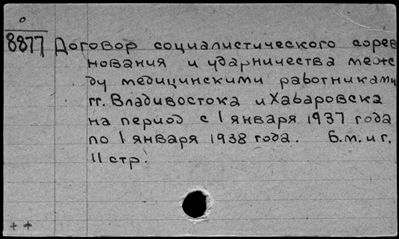 8877 Договор социалистического сорев
нования и ударничества меж
ду медицинскими работниками
гг. Владивостока и Хабаровска
на период с 1 января 1937 года
по 1 января 1938 года. Б.м. и г.
11 стр.
++